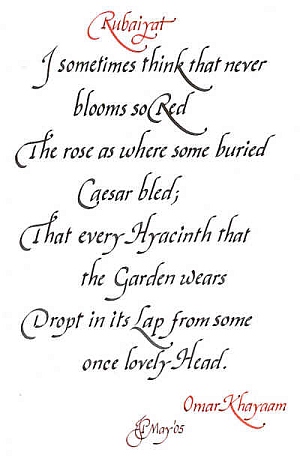 Rubaiyat
I sometimes think that never
blooms so Red
The rose as where some buried
Caesar bled;
That every Hyacinth that
the Garden wears
Dropt in its Lap from some
once lovely Head.
Omar Khayaam
May '05